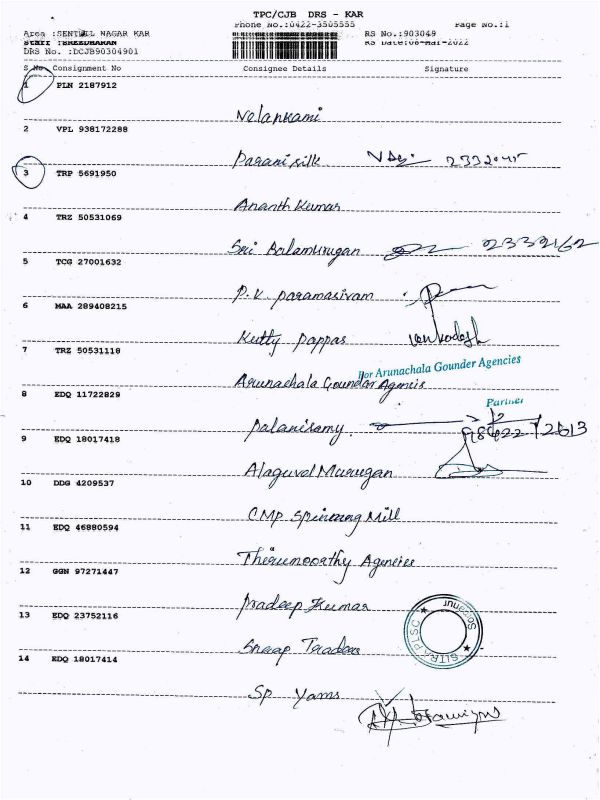 TPC/CJB DRS - KAR
Phone No.:0422-3505555 Page No.:1
Area :SENTHIL NAGAR KAR RS No.:903049
Staff :SREEDHARAN RS Date:08-Mar-2022
DRS No. :DCJB90304901
S.No Consignment No Consignee Details Signature
1 PLN 2187912
2 VPL 938172288
Parani silk
3 TRP 5691950
Ananth Kumar
4 TRZ 50531069
Sri Balamurugan 2332162
5 TCG 27001632
P.K. Paramasivam
6 MAA 289408215
Kutty Pappas Venkadesh
7 TRZ 50531118
For Arunachala Gounder Agencies
Arunachala Goundar Agencis
8 EDQ 11722829
Partner
Palanisamy
9 EDQ 18017418
Alaguvel Murugan
10 DDG 4209537
CMP Spinning Mill
11 EDQ 46880594
Thirumoorthy Agencies
12 GGN 97271447
Pradeep Kumar
13 EDQ 23752116
Traders
14 EDQ 18017414
SP Yarns